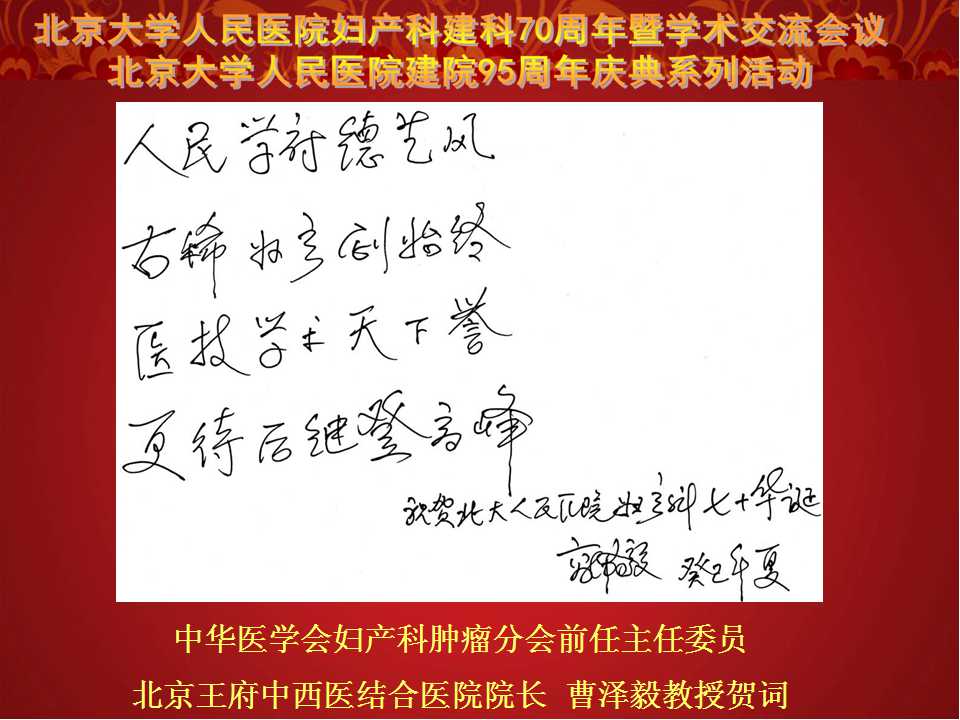 北京大学人民医院妇产科建科70周年暨学术交流会议
北京大学人民医院建院95周年庆典系列活动
人民学府德艺风
古稀妇产创始终
医技学术天下誉
更待后继登高峰
祝贺北大人民医院妇产科七十华诞
癸巳年夏
中华医学会妇产科肿瘤分会前任主任委员
北京王府中西医结合医院院长 曹泽毅教授贺词